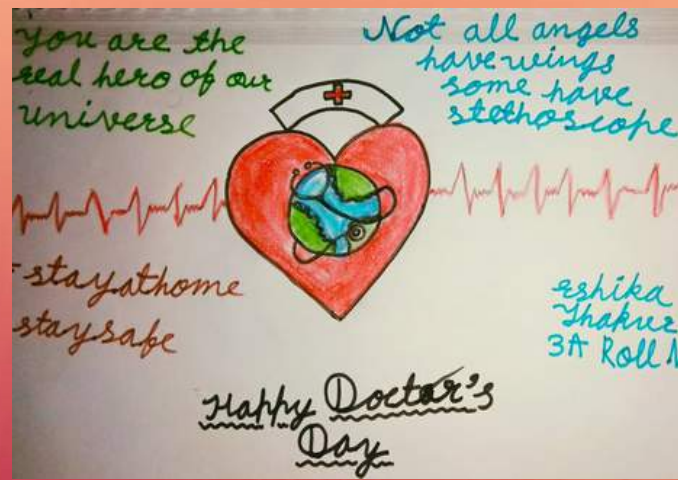 You are the
real hero of our
universe
Not all angels
have wings
some have
stethoscope
stay at home
stay safe
eshika
Thakur
3A Roll N
Happy Doctor's
Day